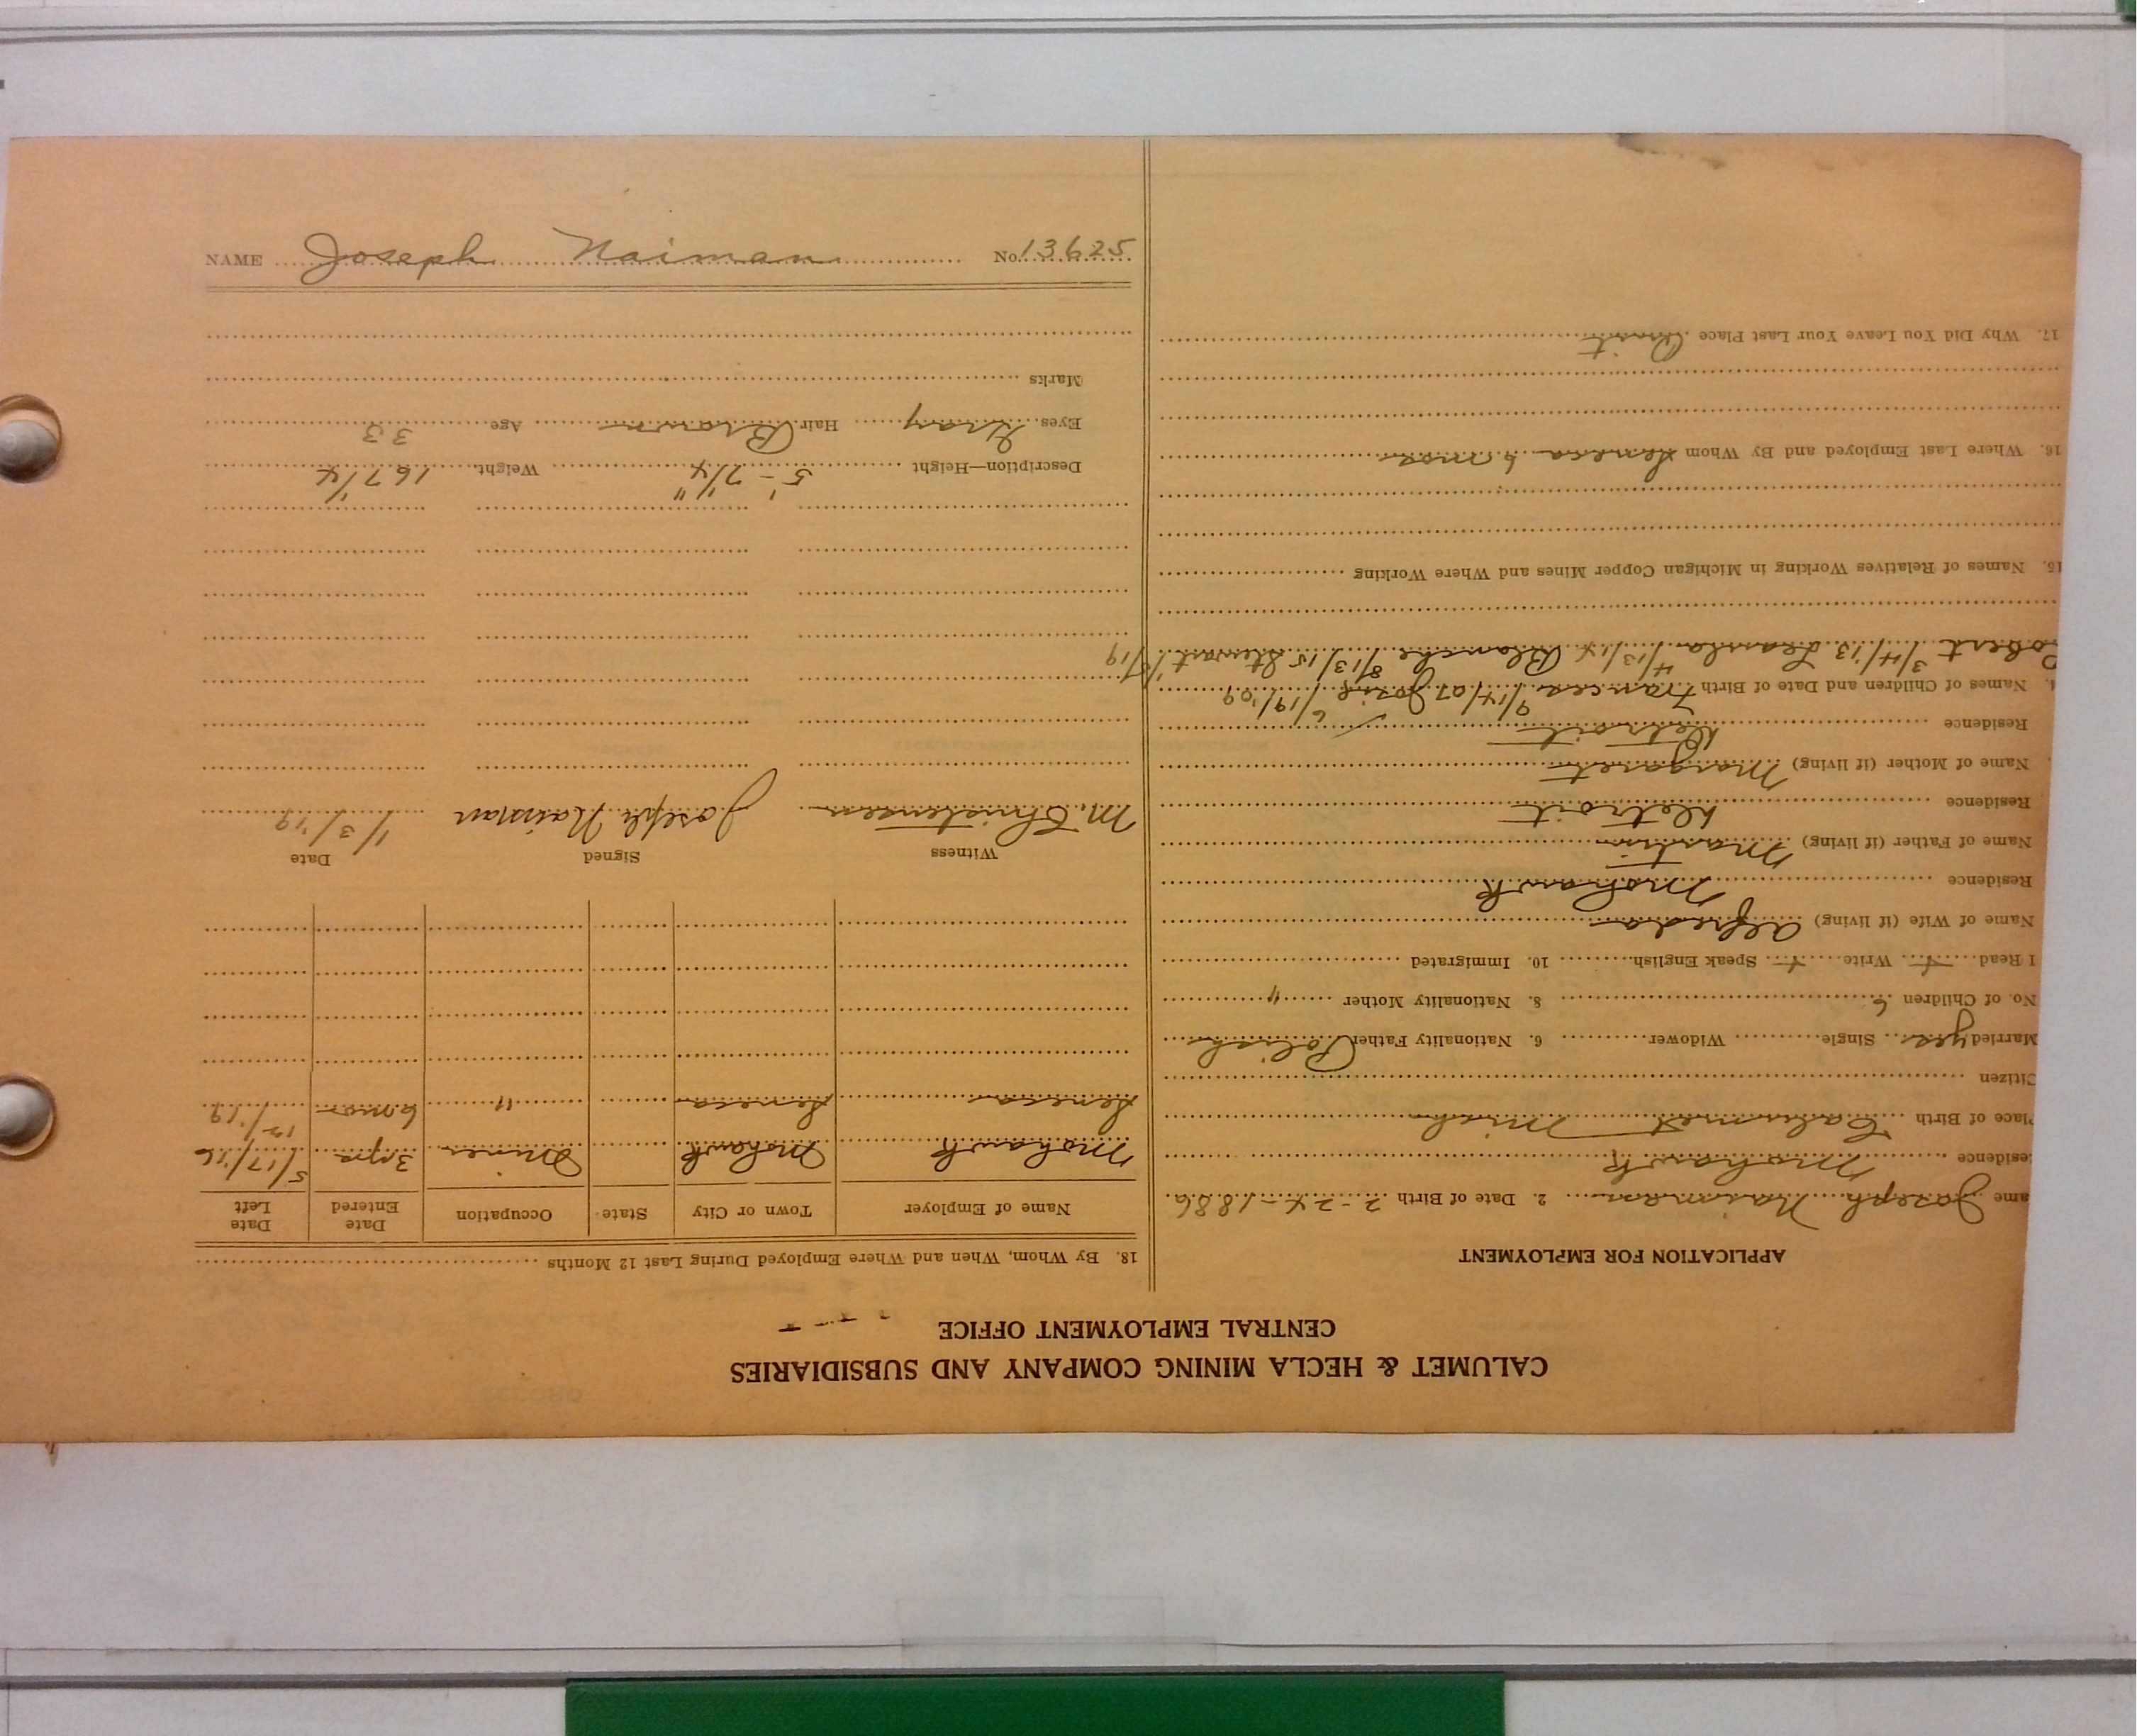 NAME Joseph Naiman No. 13625
CALUMET & HECLA MINING COMPANY AND SUBSIDIARIES
CENTRAL EMPLOYMENT OFFICE
APPLICATION FOR EMPLOYMENT
ame Joseph Naiman 2. Date of Birth 2-24-1886
esidence Mohawk
Place of Birth Calumet Mich
Citizen
Married yes Single Widower 6. Nationality Father Polish
No. of Children 6 8. Nationality Mother "
I Read Write Speak English 10. Immigrated
Name of Wife (if living) Alfreda
Residence Mohawk
Name of Father (if living) Martin
Residence Detroit
Name of Mother (if living) Margaret
Residence Detroit
4. Names of Children and Date of Birth Frances 9/14/07 Josie 6/19/09
Robert 3/4/13 4/13/14 Blanche 8/13/15 Stewart
15. Names of Relatives Working in Michigan Copper Mines and Where Working
16. Where Last Employed and By Whom Seneca 6 mos
17. Why Did You Leave Your Last Place Quit
18. By Whom, When and Where Employed During Last 12 Months
Name of Employer Town or City State Occupation Date Entered Date Left
Mohawk Mohawk Miner 3 yrs 5/17/16
Seneca Seneca " 6 mos
Witness Signed Date
M. Christensen Joseph Naiman 1/3/19
Description—Height 5'-7 1/4" Weight 167 1/4
Eyes Gray Hair Brown Age 33
Marks